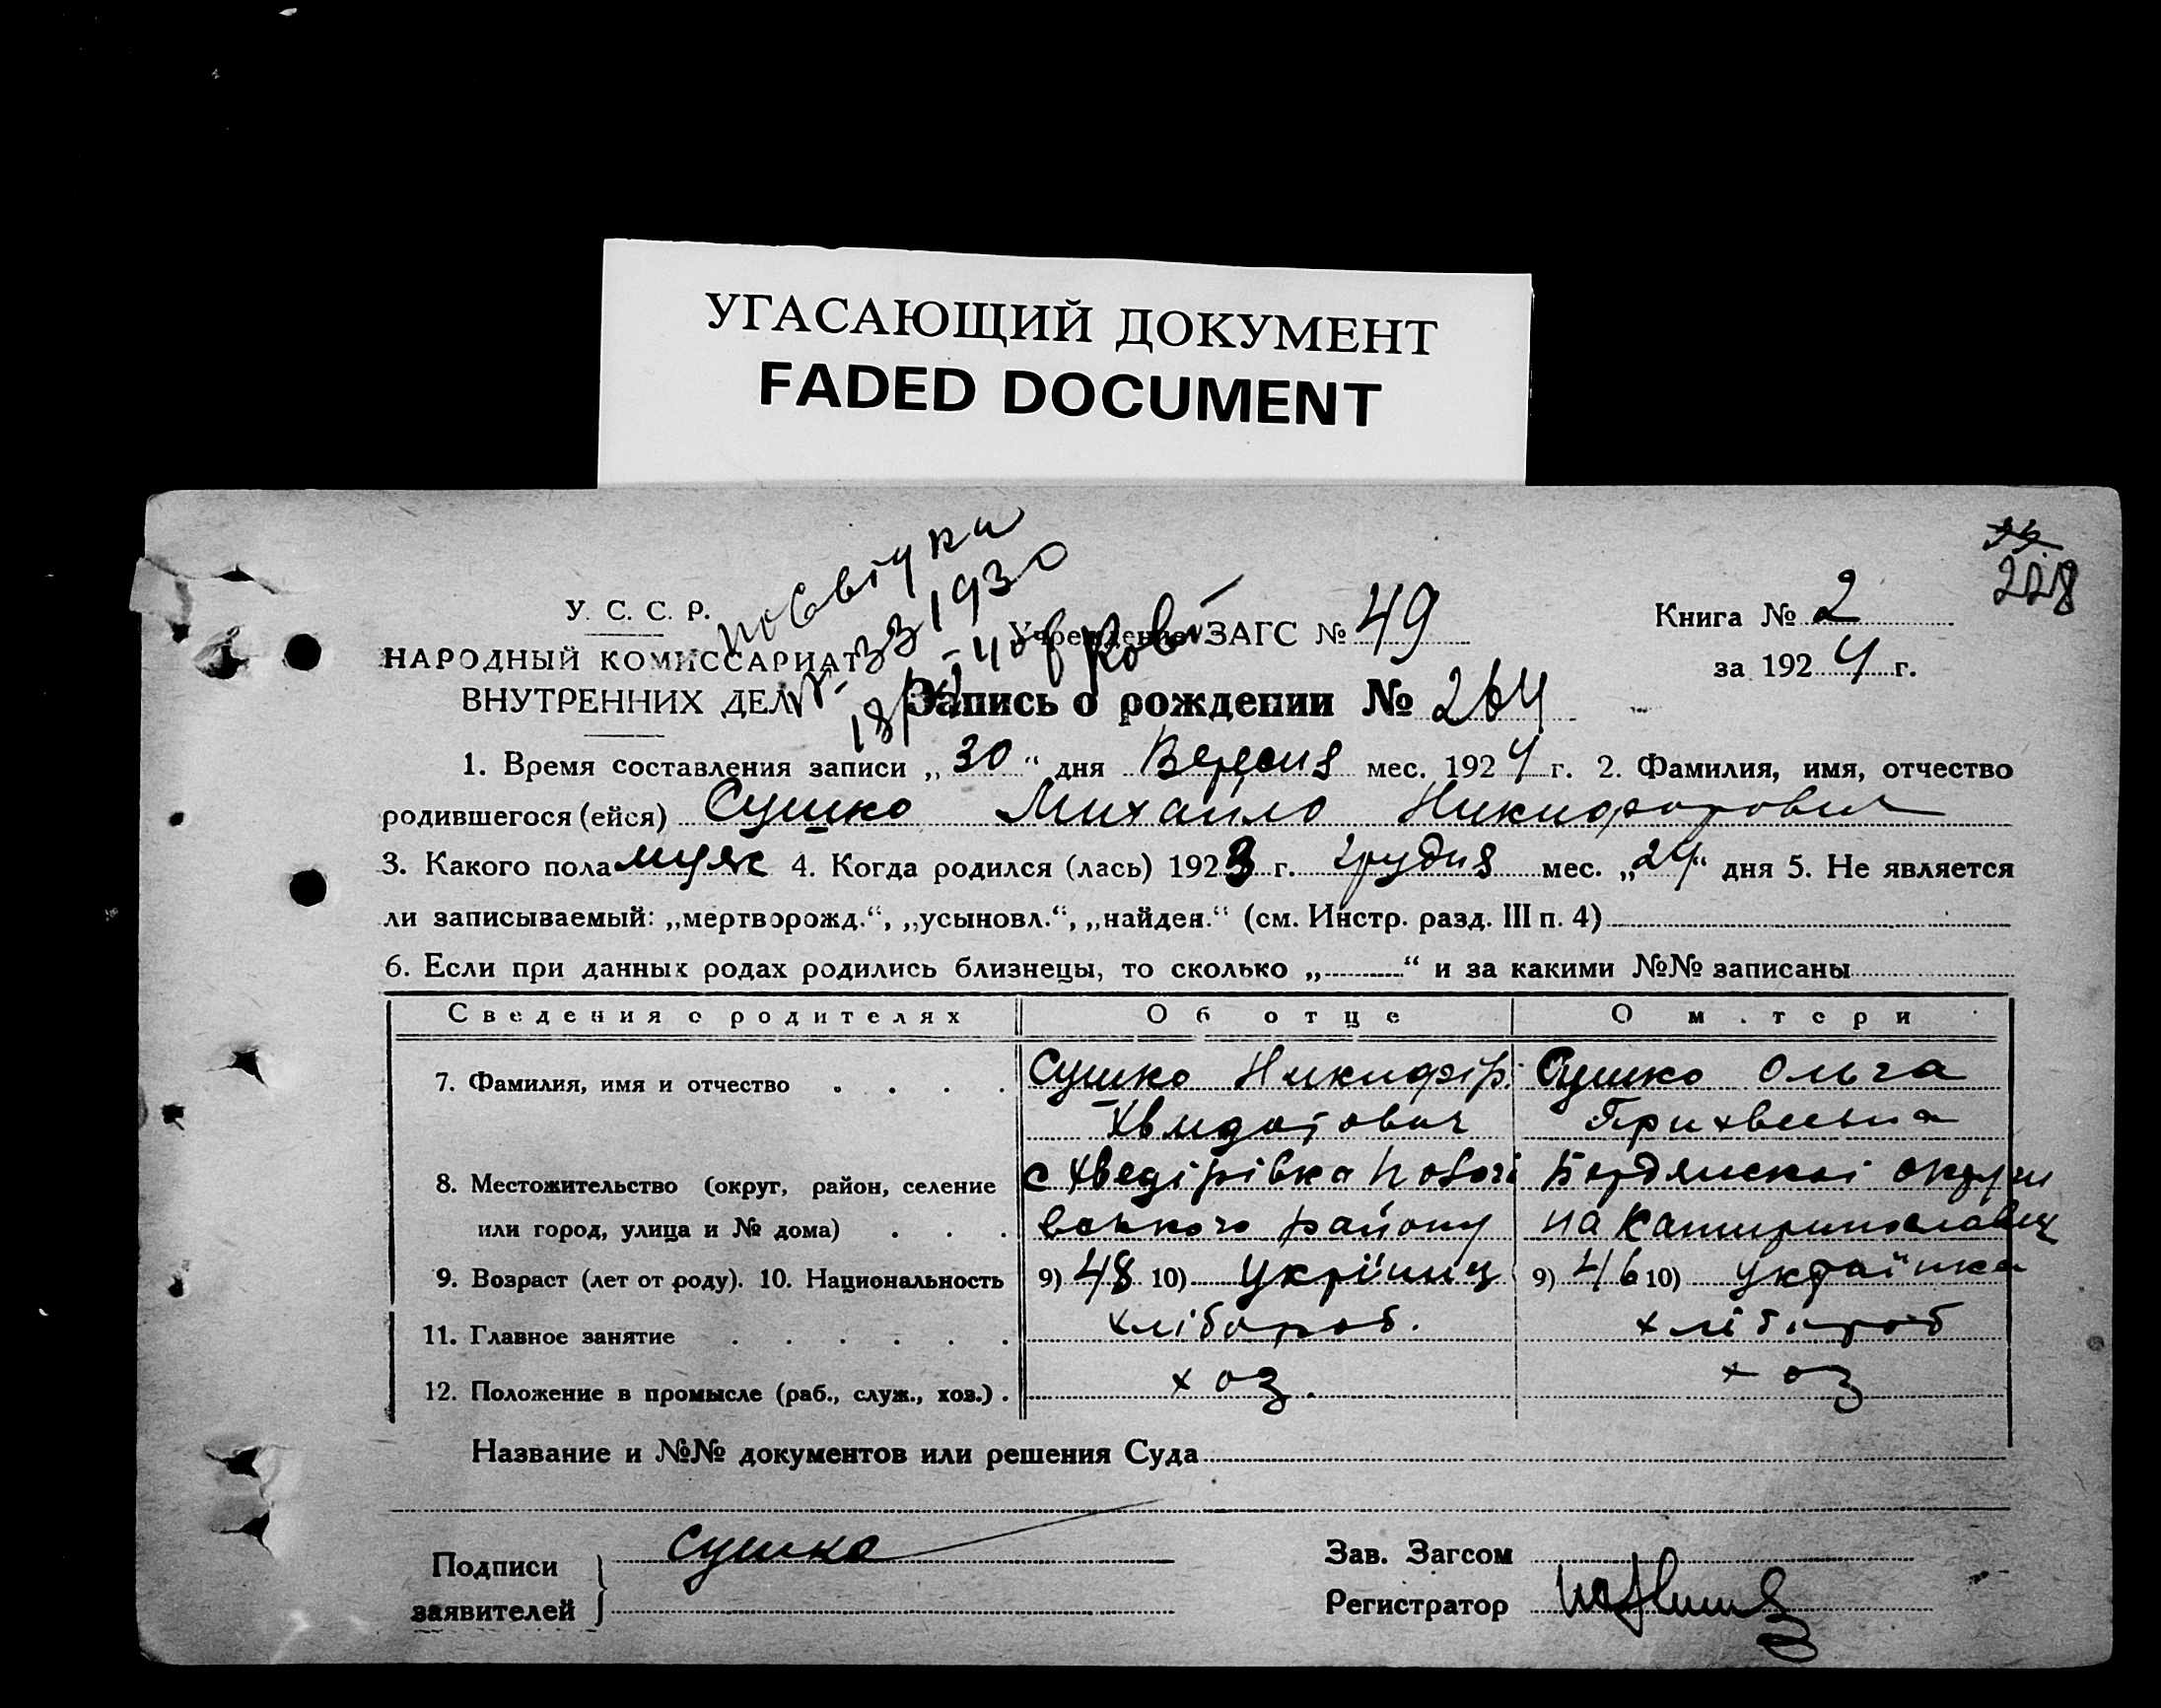 УГАСАЮЩИЙ ДОКУМЕНТ
FADED DOCUMENT
228
У. С. С. Р.
НАРОДНЫЙ КОМИССАРИАТ
ВНУТРЕННИХ ДЕЛ
1930
Учреждение ЗАГС № 49
Книга № 2
за 1924 г.
Запись о рождении № 264
1. Время составления записи „30“ дня Вересня мес. 1924 г. 2. Фамилия, имя, отчество
родившегося (ейся) Сушко Михайло Никифорович
3. Какого пола муж 4. Когда родился (лась) 1923 г. грудня мес. „24“ дня 5. Не является
ли записываемый: „мертворожд.“, „усыновл.“, „найден.“ (см. Инстр. разд. III п. 4)
6. Если при данных родах родились близнецы, то сколько „ “ и за какими №№ записаны
Сведения о родителях Об отце О матери
7. Фамилия, имя и отчество . . . . Сушко Никифір Сушко Ольга
8. Местожительство (округ, район, селение с Хведірівка Бердянскої округи
или город, улица и № дома) . . . району на Катиринославщ
9. Возраст (лет от роду). 10. Национальность 9) 48 10) Украінец 9) 46 10) Українка
11. Главное занятие . . . . . . хлібороб. хлібороб
12. Положение в промысле (раб., служ., хоз.) . хоз. хоз
Название и №№ документов или решения Суда
Подписи заявителей } Сушко
Зав. Загсом
Регистратор